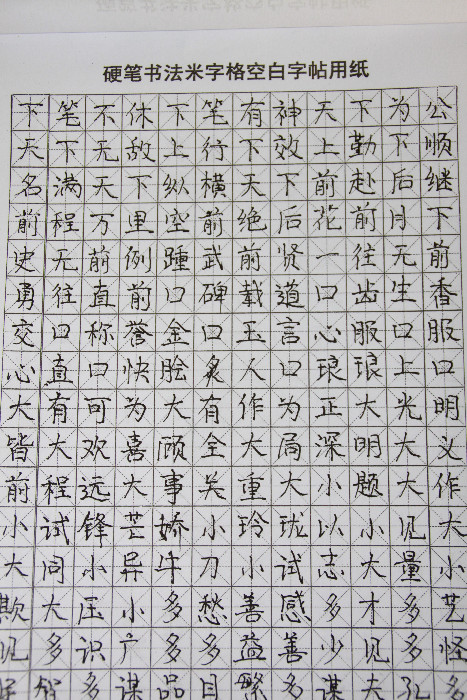 硬笔书法米字格空白字帖用纸
下笔不休下笔有神天下为公
天下无敌上行下效上勤下顺
名满天下纵横天下前赴后继
前程万里空前绝后花前月下
史无前例踵武前贤一往无前
勇往直前口碑载道口齿生香
交口称誉金口玉言心服口服
心直口快脍炙人口琅琅上口
大有可为大有作为正大光明
皆大欢喜顾全大局深明大义
前程远大事关重大小题大作
小试锋芒娇小玲珑以小见大
大同小异牛刀小试志大量小
欺大压小多愁善感多才多艺
见多识广多多益善少见多怪
足智多谋品目繁多谋夫孔多